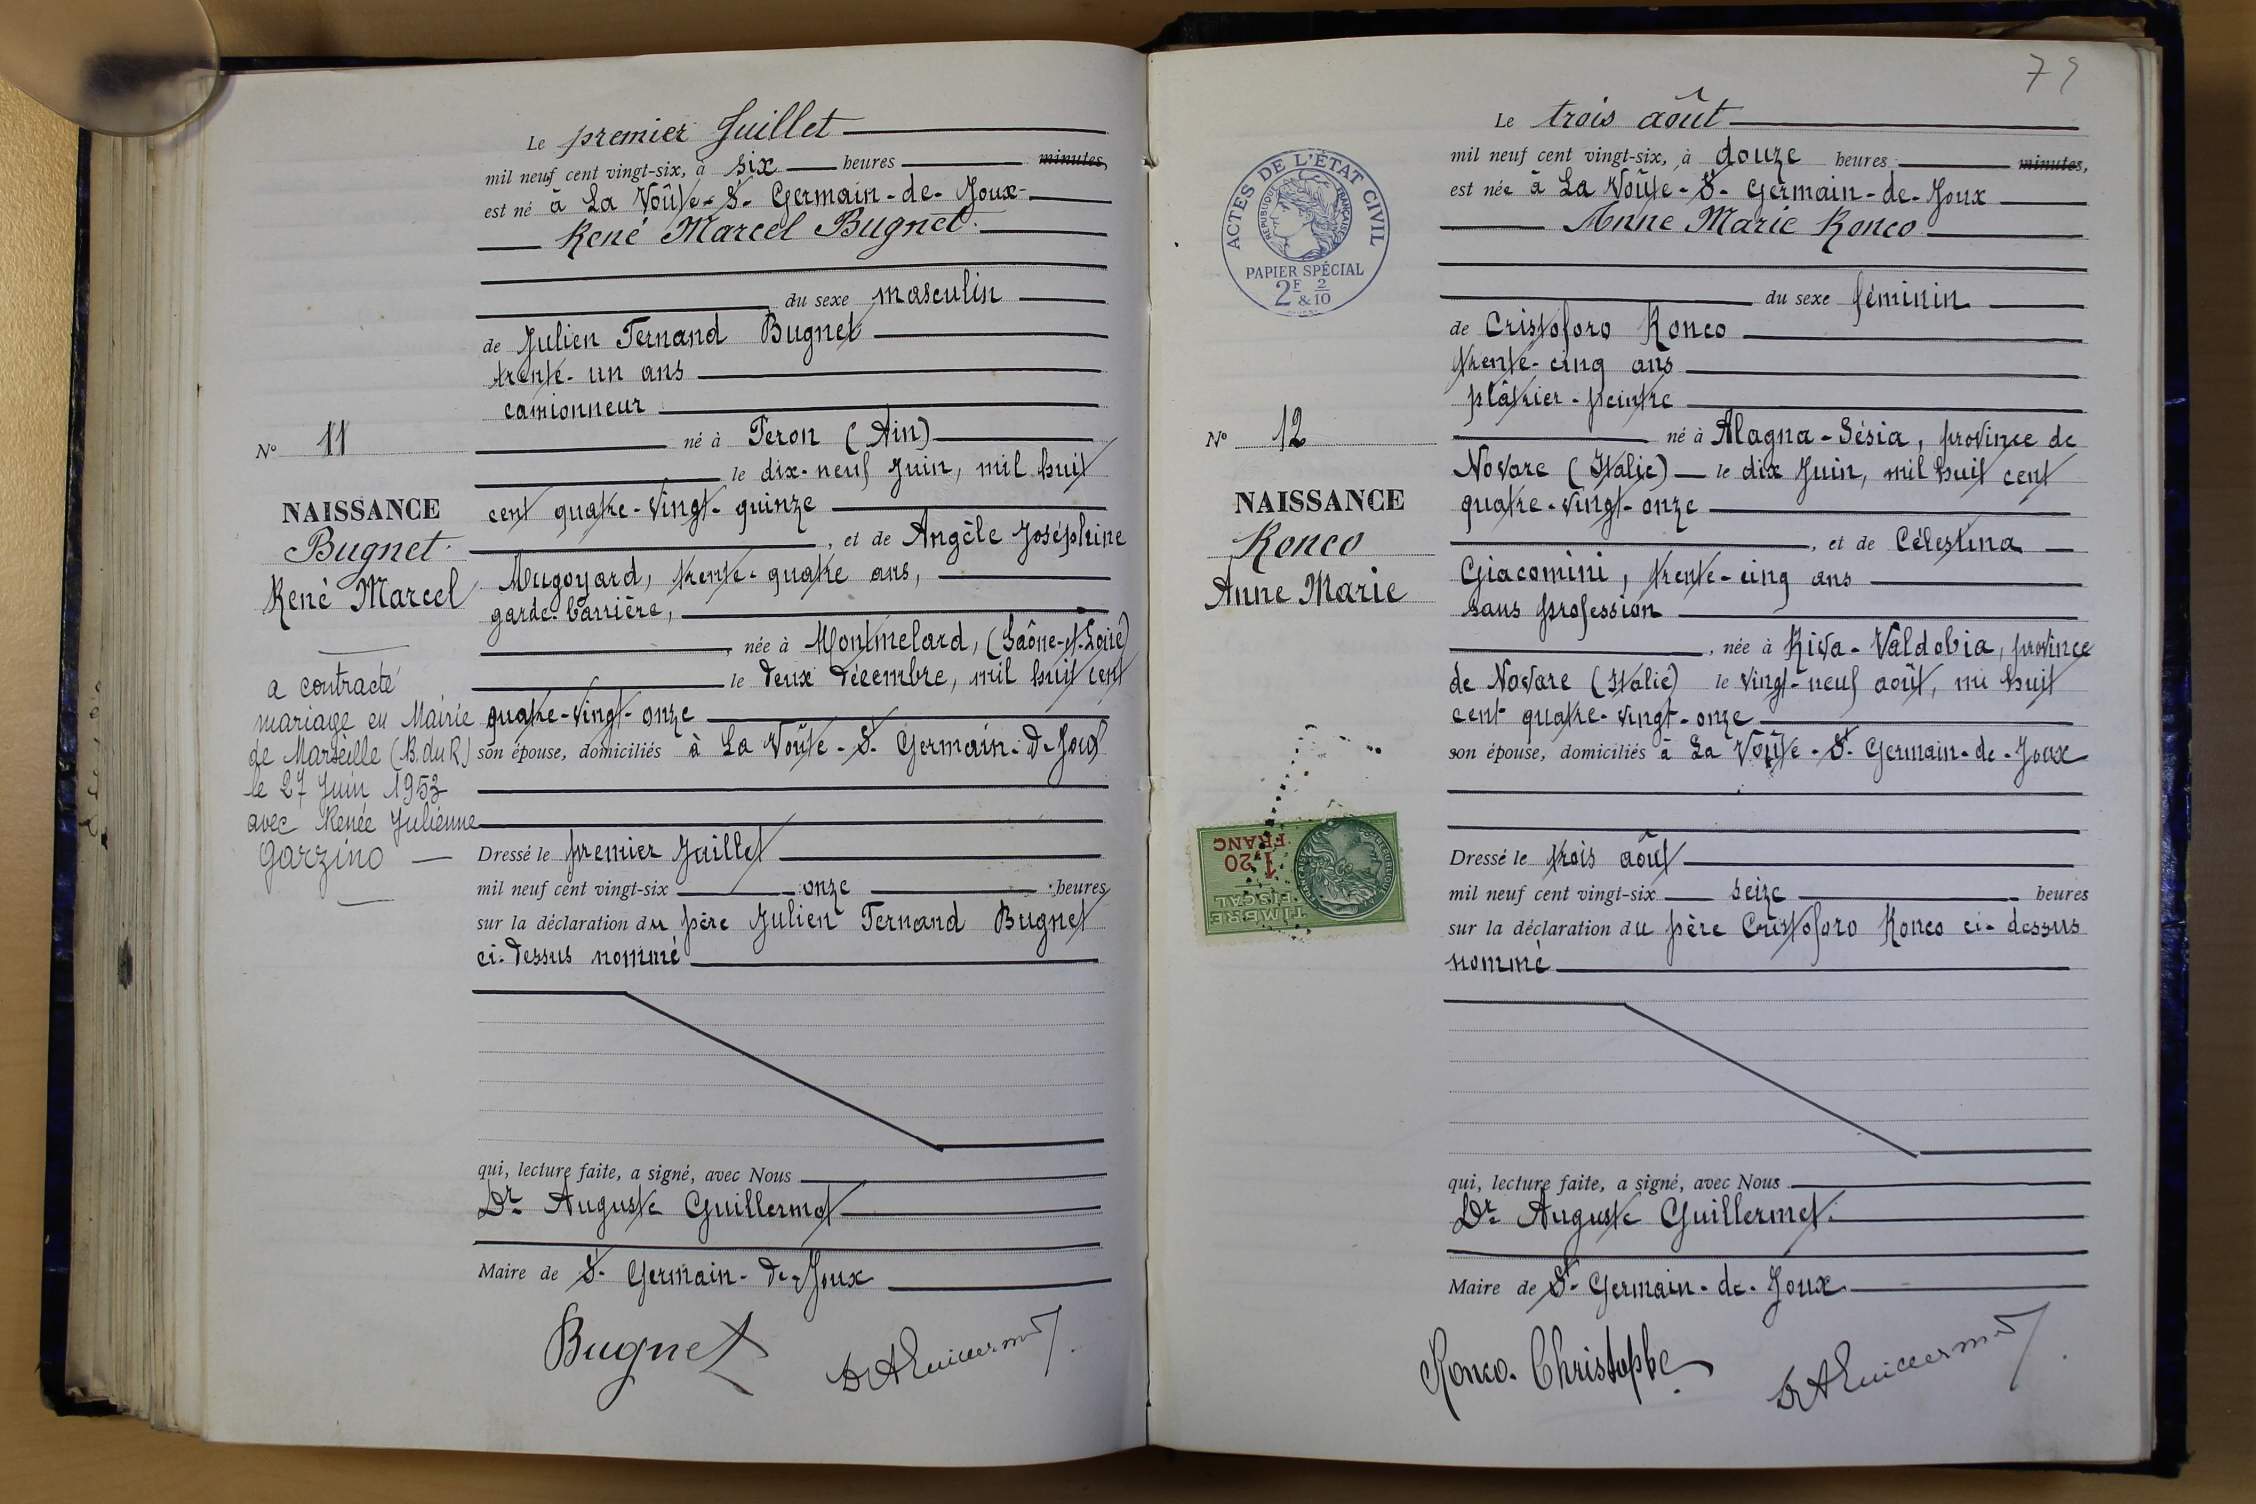 Le premier Juillet
mil neuf cent vingt-six, à six heures minutes,
est né à La Voûte-St-Germain-de-Joux
René Marcel Bugnet
du sexe masculin
de Julien Fernand Bugnet
trente-un ans
camionneur
né à Feron (Ain)
le dix-neuf Juin, mil huit
cent quatre-vingt-quinze
, et de Angèle Joséphine
Mugoyard, trente-quatre ans,
garde-barrière,
, née à Montmelard, (Saône-et-Loire)
le deux décembre, mil huit cent
quatre-vingt-onze
son épouse, domiciliés à La Voûte-St-Germain-de-Joux
Dressé le premier Juillet
mil neuf cent vingt-six onze heures
sur la déclaration du père Julien Fernand Bugnet
ci-dessus nommé
qui, lecture faite, a signé, avec Nous
Dr Auguste Guillermet
Maire de St-Germain-de-Joux
Bugnet
Dr A Guillermet
No 11
NAISSANCE
Bugnet
René Marcel
a contracté
mariage en Mairie
de Marseille (B. du R)
le 27 Juin 1953
avec Renée Julienne
Garzino
79
Le trois août
mil neuf cent vingt-six, à douze heures minutes,
est née à La Voûte-St-Germain-de-Joux
Anne Marie Ronco
du sexe féminin
de Cristoforo Ronco
trente-cinq ans
plâtrier-peintre
né à Alagna-Sésia, province de
Novare (Italie) le dix Juin, mil huit cent
quatre-vingt-onze
, et de Célestina
Giacomini, trente-cinq ans
sans profession
, née à Riva-Valdobia, province
de Novare (Italie) le vingt-neuf août, mi huit
cent quatre-vingt-onze
son épouse, domiciliés à La Voûte-St-Germain-de-Joux
Dressé le trois août
mil neuf cent vingt-six seize heures
sur la déclaration du père Cristoforo Ronco ci-dessus
nommé
qui, lecture faite, a signé, avec Nous
Dr Auguste Guillermet.
Maire de St-Germain-de-Joux
Ronco. Christophe
Dr A Guillermet
ACTES DE L'ÉTAT CIVIL
RÉPUBLIQUE FRANÇAISE
PAPIER SPÉCIAL
2F 2
&10
No 12
NAISSANCE
Ronco
Anne Marie
TIMBRE
FISCAL
1 20
FRANC